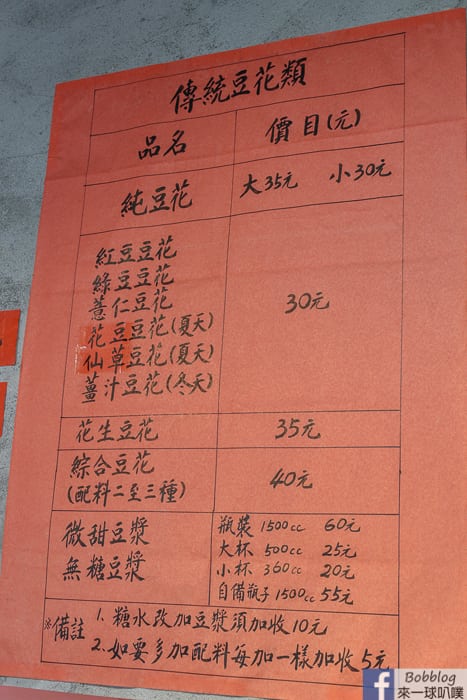 傳統豆花類
品名 價目(元)
純豆花 大35元 小30元
紅豆豆花
綠豆豆花
薏仁豆花
花豆豆花(夏天)
仙草豆花(夏天)
薑汁豆花(冬天)
30元
花生豆花 35元
綜合豆花
(配料二至三種)
40元
微甜豆漿
無糖豆漿
瓶裝 1500cc 60元
大杯 500cc 25元
小杯 360cc 20元
自備瓶子1500cc 55元
※備註
1. 糖水改加豆漿須加收10元
2. 如要多加配料每加一樣加收5元
Bobblog
來一球叭噗